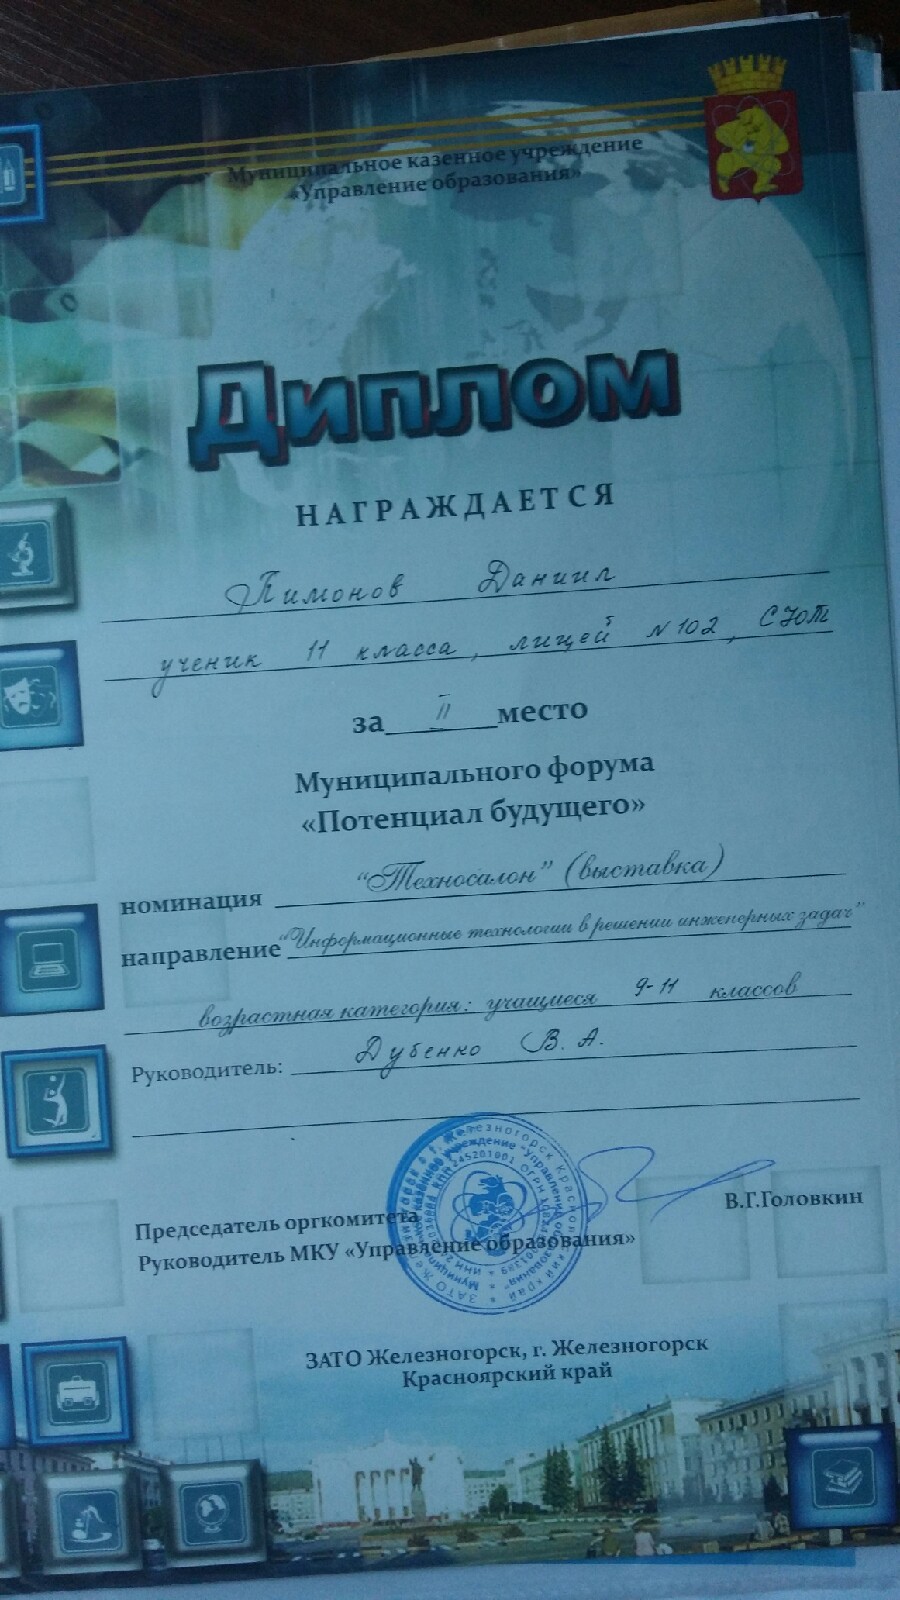 Муниципальное казенное учреждение
«Управление образования»
Диплом
НАГРАЖДАЕТСЯ
Пимонов Даниил
ученик 11 класса, лицей №102, СЮТ
за II место
Муниципального форума
«Потенциал будущего»
номинация "Техносалон" (выставка)
направление "Информационные технологии в решении инженерных задач"
возрастная категория: учащиеся 9-11 классов
Руководитель: Дубенко В. А.
Председатель оргкомитета
Руководитель МКУ «Управление образования»
В.Г.Головкин
ЗАТО Железногорск, г. Железногорск
Красноярский край